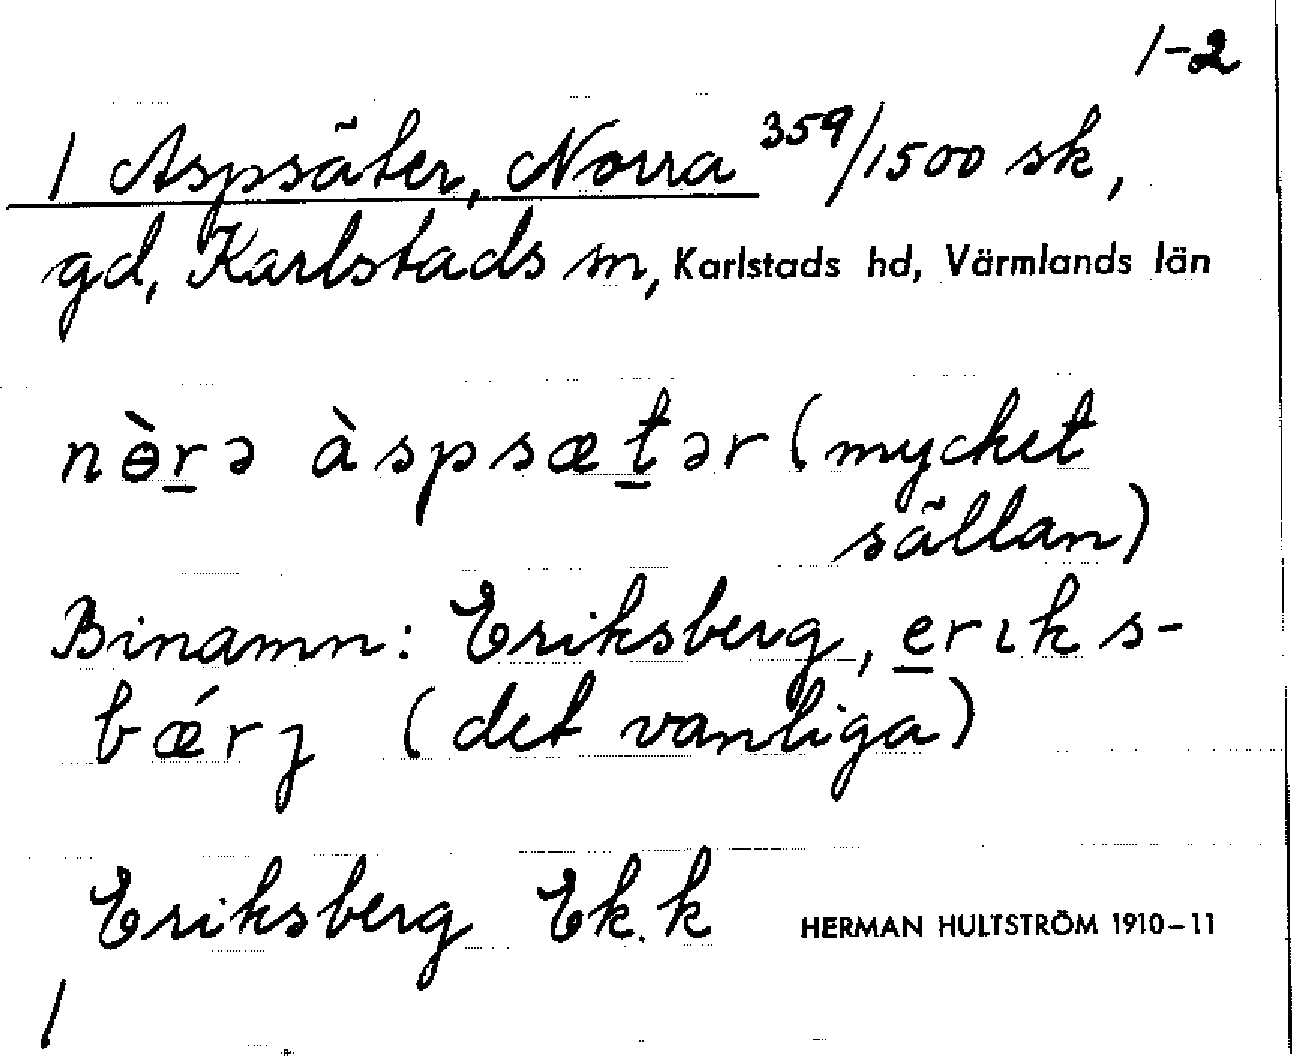 1-2
1 Aspsäter, Norra 359/1500 sk,
gd, Karlstads sn, Karlstads hd, Värmlands län
nɵ̀r̲ə àspsæt̲ər (mycket
sällan)
Binamn: Eriksberg, e̲rıks-
bǽrȷ (det vanliga)
Eriksberg Ek. k HERMAN HULTSTRÖM 1910-11
/